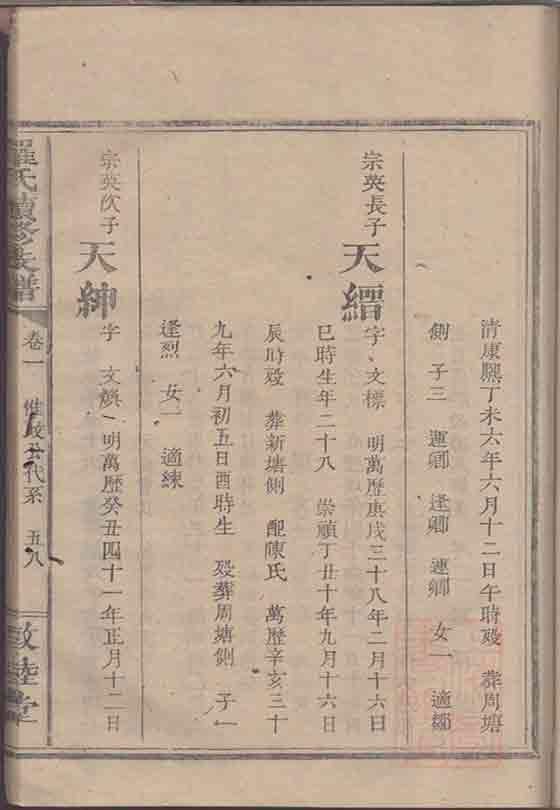 清康熙丁未六年六月十二日午時殁 葬周塘
側 子三 運卿 逢卿 連卿 女一 適鄒
宗英長子 天縉 字、文標 明萬歷庚戌三十八年二月十六日
巳時生年二十八 崇禎丁丑十年九月十六日
辰時殁 葬新塘側 配陳氏 萬歷辛亥三十
九年六月初五日酉時生 殁葬周塘側 子一
逢烈 女一 適練
宗英次子 天紳 字 文 明萬歷癸丑四十一年正月十二日
羅氏續修長譜 卷一 公代系 五八 敦睦堂